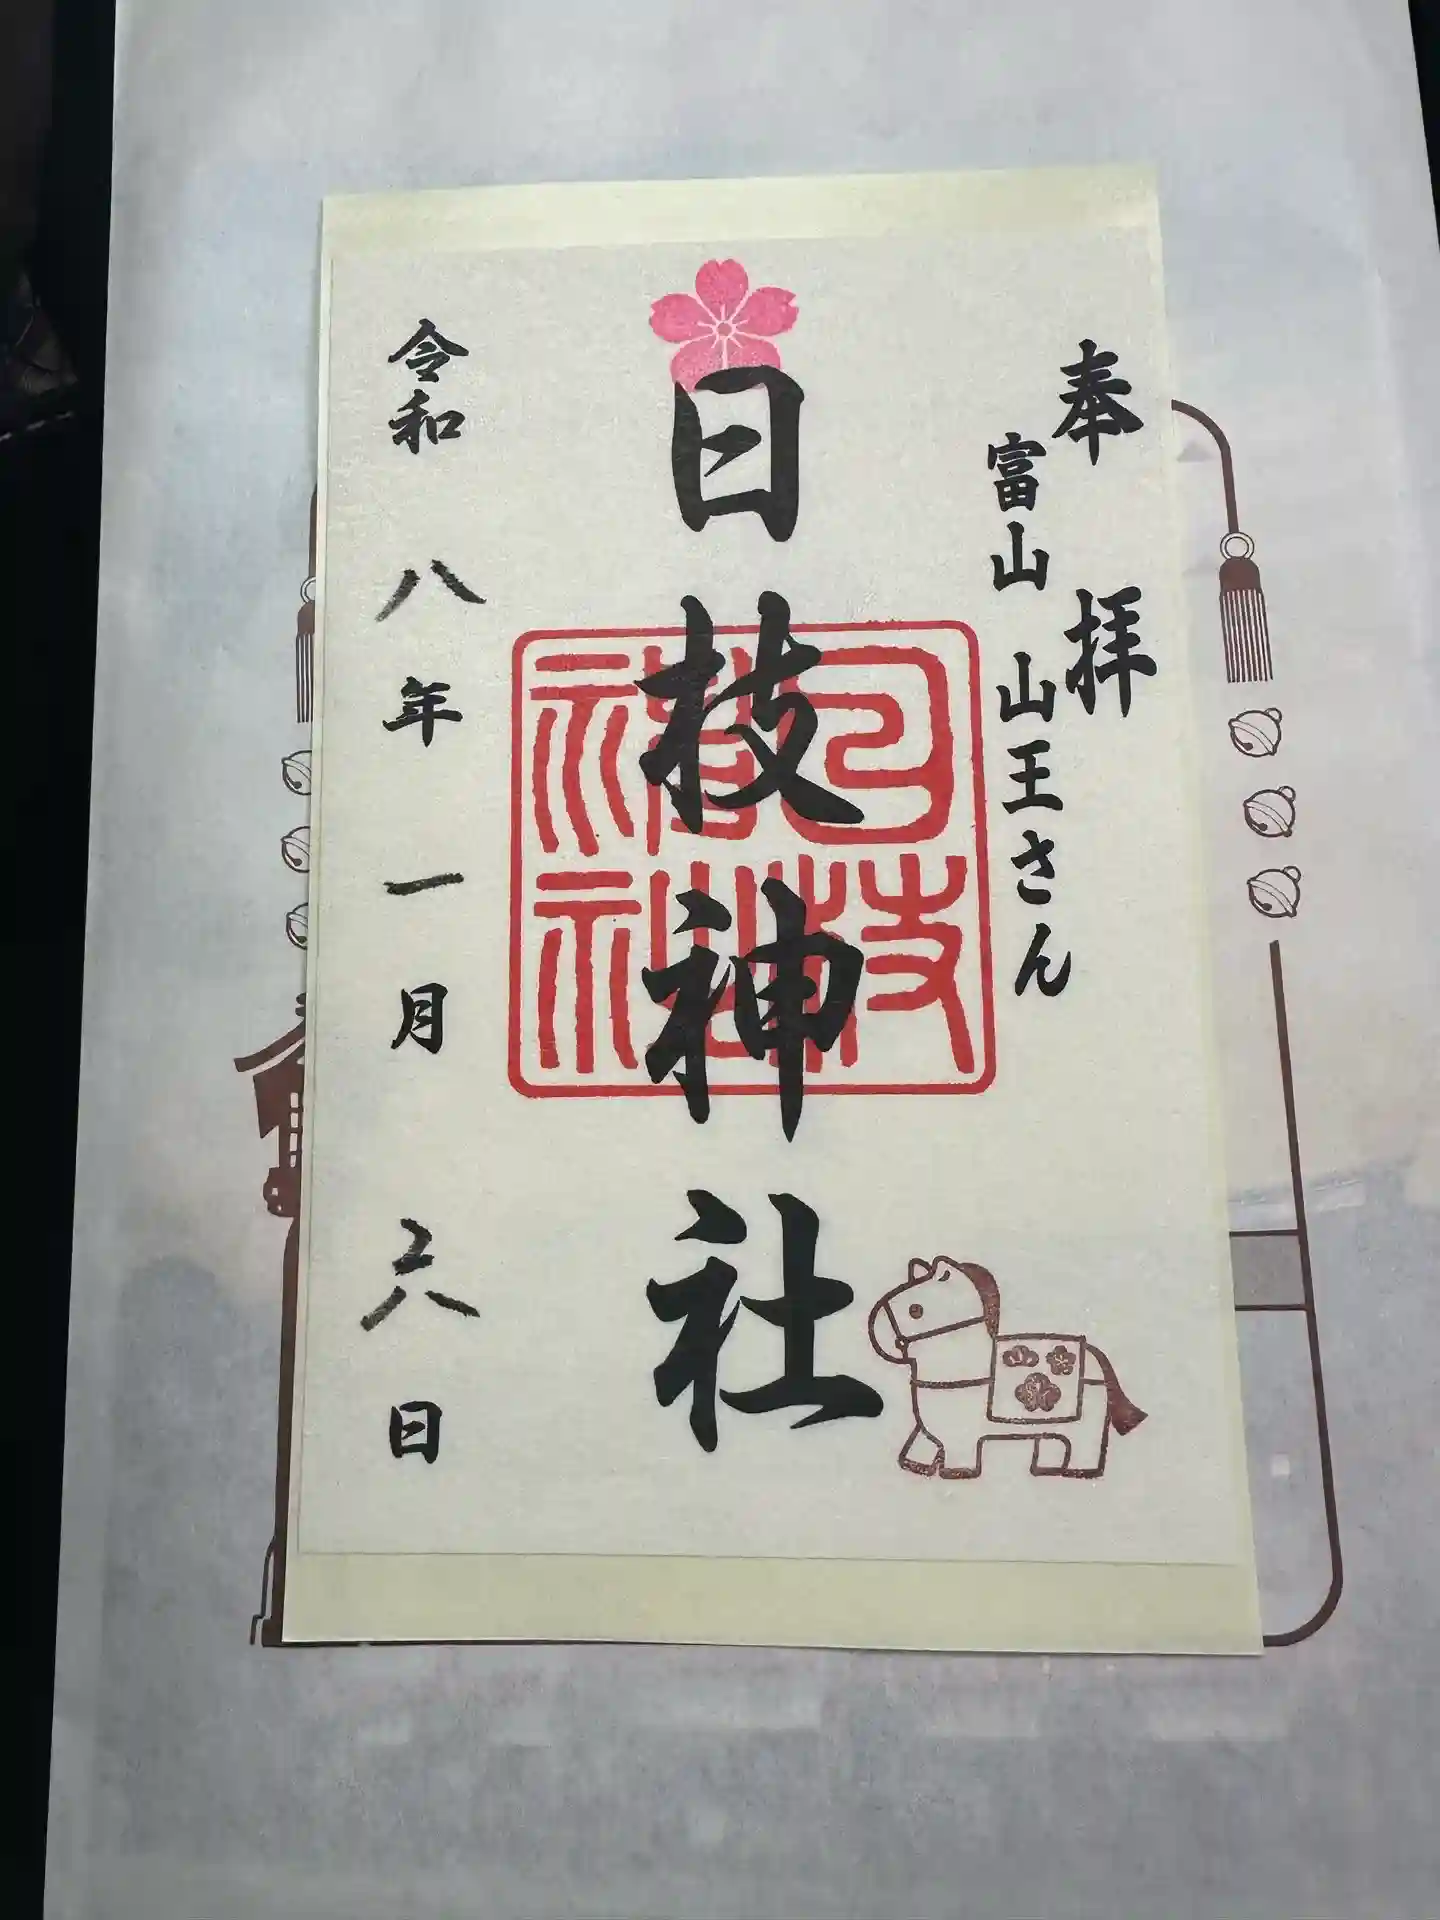 奉拝
富山 山王さん
日枝神社
日枝神社
令和八年一月二八日